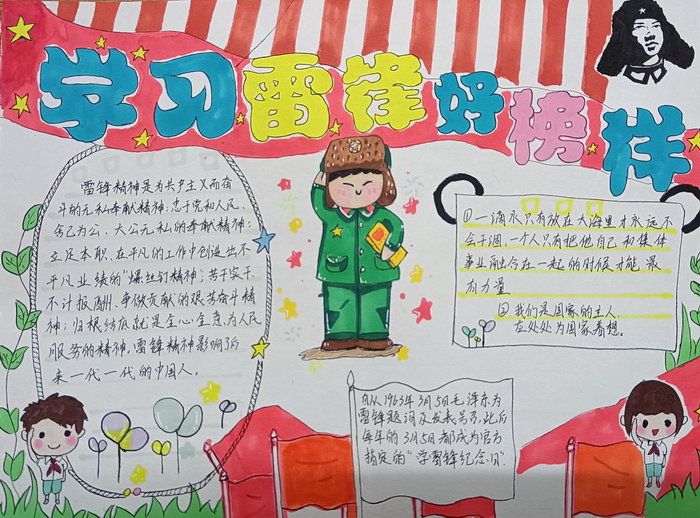 学习雷锋好榜样
雷锋精神是为共产主义而奋
斗的无私奉献精神；忠于党和人民、
舍己为公、大公无私的奉献精神；
立足本职、在平凡的工作中创造出不
平凡业绩的"螺丝钉精神；苦干实干、
不计报酬、争做贡献的艰苦奋斗精
神；归根结底就是全心全意为人民
服务的精神，雷锋精神影响了后
来一代一代的中国人。
①一滴水只有放在大海里才永远不
会干涸，一个人只有把他自己和集体
事业融合在一起的时候才能最
有力量
②我们是国家的主人，
应处处为国家着想。
1963年3月5日毛泽东为
雷锋题词及发表号召，此后
每年的3月5日都成为官方
指定的"学雷锋纪念日"